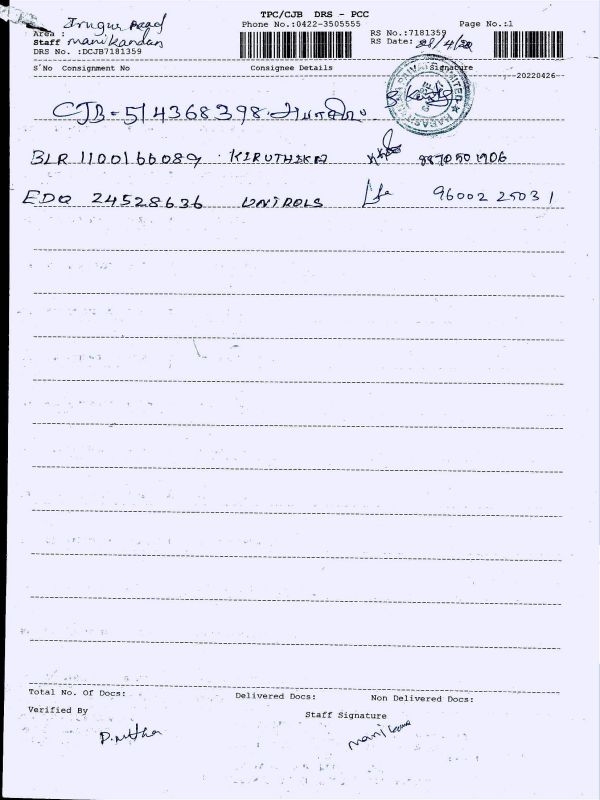 TPC/CJB DRS - PCC
Phone No.:0422-3505555
Page No.:1
Irugur Road
Area :
Staff Manikandan
DRS No. :DCJB7181359
RS No.:7181359
RS Date: 28/4/22
S'No Consignment No Consignee Details Signature
20220426
CJB-514368398
BLR 1100166089 KIRUTHIKA 8870501906
EDQ 24528636 UNIROLS 96002 25031
Total No. Of Docs: Delivered Docs: Non Delivered Docs:
Verified By Staff Signature